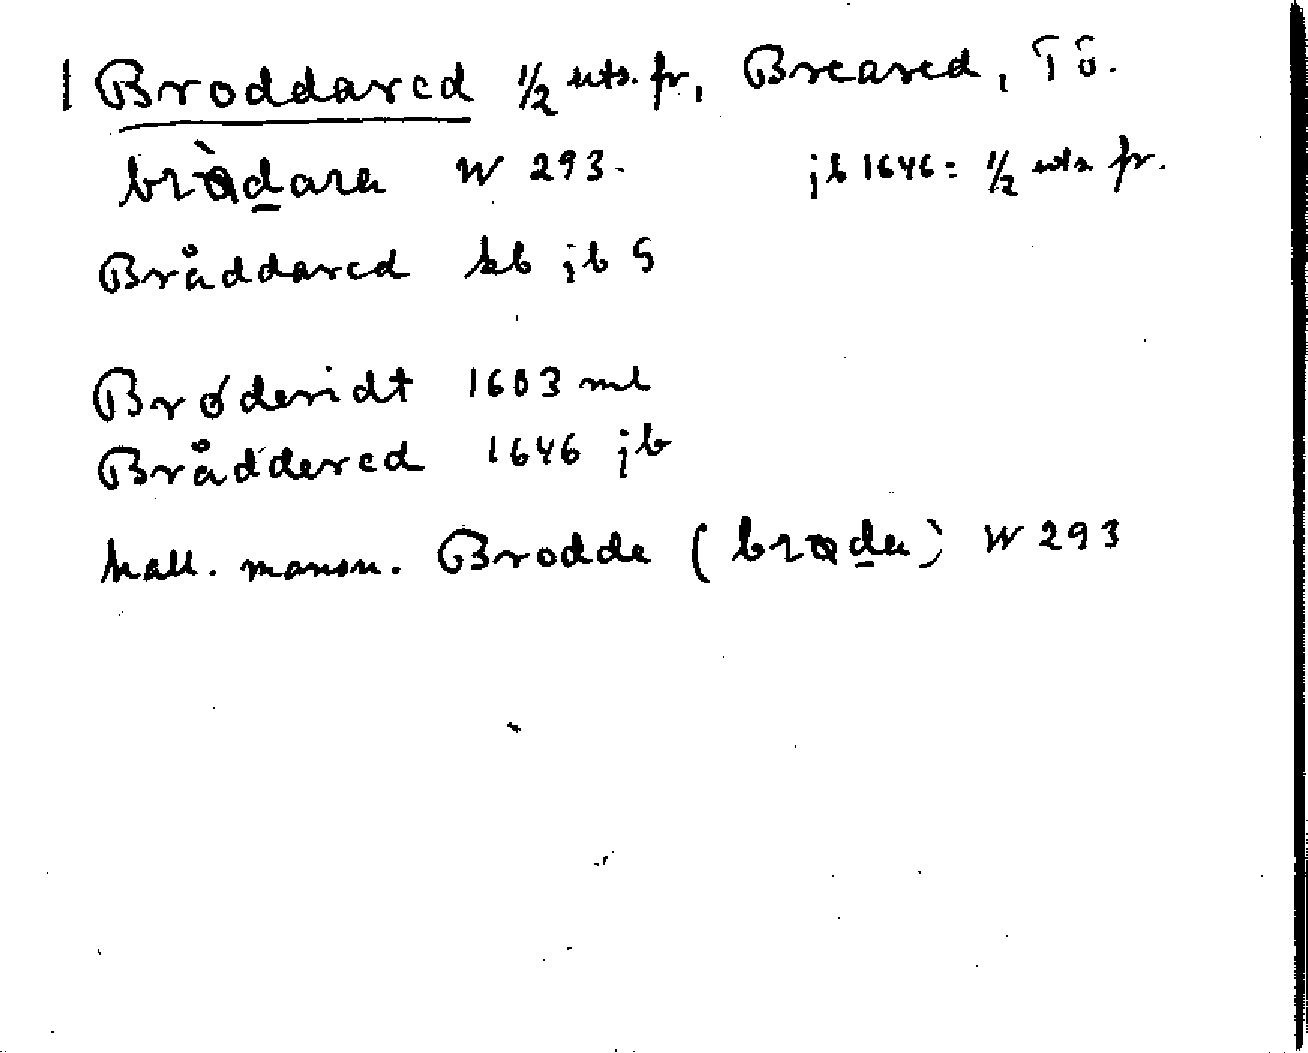 1 Broddared 1/2 uts. fr, Breared, Tö.
bròdara W 293. jb 1646: 1/2 uts fr.
Bråddared kb jb G
Brøderidt 1603 ml
Bråddered 1646 jb
hall. mansn. Brodde (broda) W 293